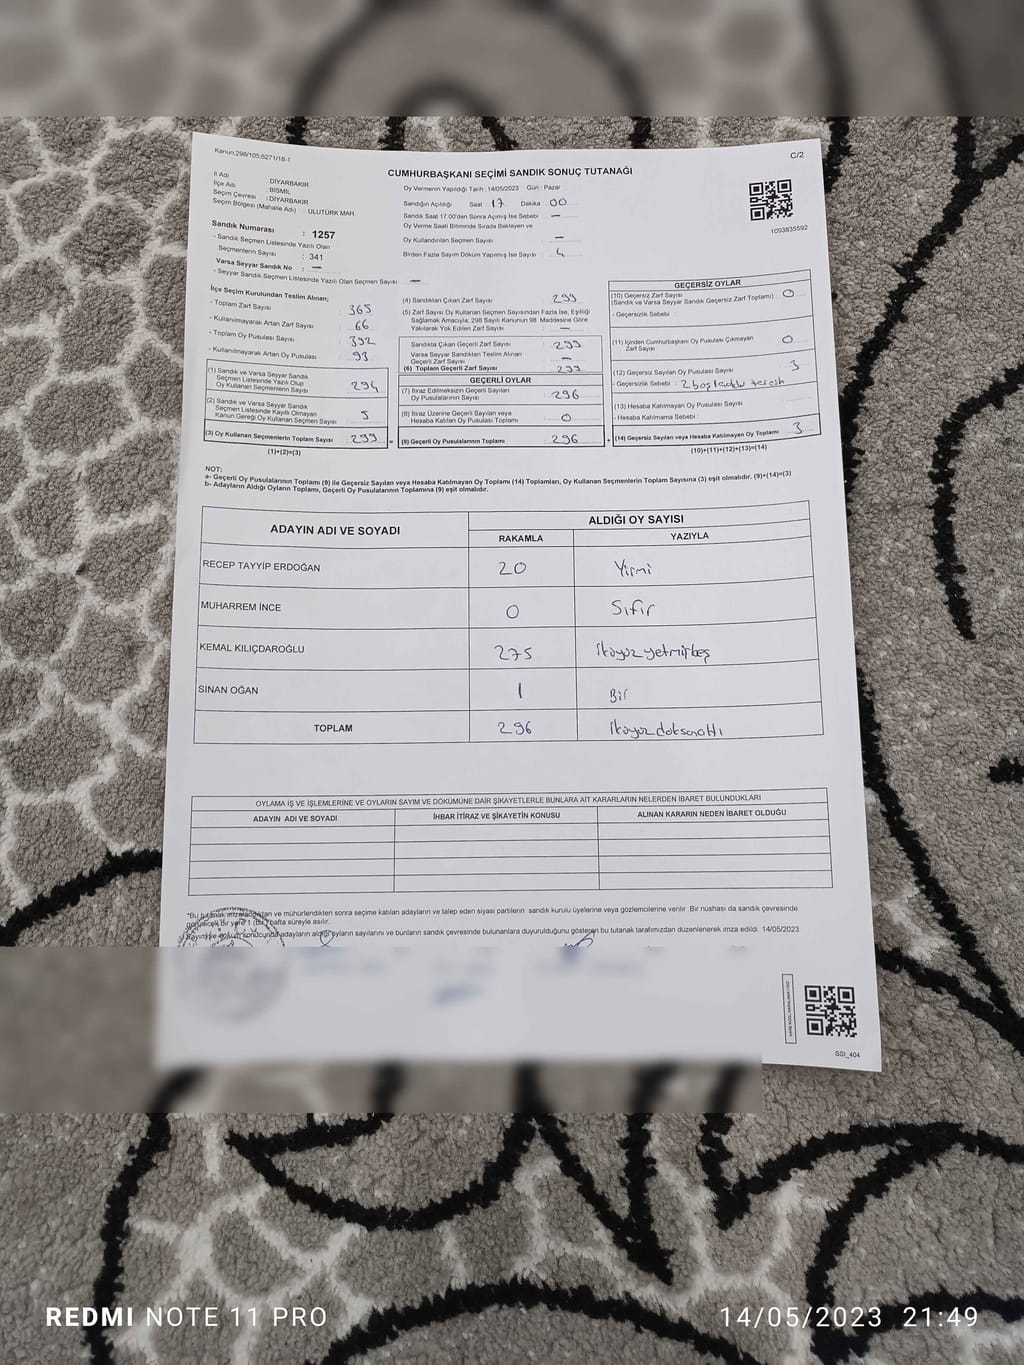 Kanun:298/105;6271/18-1
C/2
CUMHURBAŞKANI SEÇİMİ SANDIK SONUÇ TUTANAĞI
İl Adı : DİYARBAKIR
İlçe Adı : BİSMİL
Seçim Çevresi : DİYARBAKIR
Seçim Bölgesi (Mahalle Adı) : ULUTÜRK MAH
Sandık Numarası : 1257
- Sandık Seçmen Listesinde Yazılı Olan
Seçmenlerin Sayısı : 341
Varsa Seyyar Sandık No : —
- Seyyar Sandık Seçmen Listesinde Yazılı Olan Seçmen Sayısı : —
Oy Vermenin Yapıldığı Tarih : 14/05/2023 Gün : Pazar
Sandığın Açıldığı Saat : 17 Dakika : 00
Sandık Saat 17:00'den Sonra Açılmış İse Sebebi : —
Oy Verme Saati Bitiminde Sırada Bekleyen ve
Oy Kullandırılan Seçmen Sayısı : —
Birden Fazla Sayım Döküm Yapılmış İse Sayısı : 4
1093835592
İlçe Seçim Kurulundan Teslim Alınan;
- Toplam Zarf Sayısı : 365
- Kullanılmayarak Artan Zarf Sayısı : 66
- Toplam Oy Pusulası Sayısı : 392
- Kullanılmayarak Artan Oy Pusulası : 93
(1) Sandık ve Varsa Seyyar Sandık
Seçmen Listesinde Yazılı Olup
Oy Kullanan Seçmenlerin Sayısı : 294
(2) Sandık ve Varsa Seyyar Sandık
Seçmen Listesinde Kayıtlı Olmayan
Kanun Gereği Oy Kullanan Seçmen Sayısı : 5
(3) Oy Kullanan Seçmenlerin Toplam Sayısı : 299
(1)+(2)=(3)
(4) Sandıktan Çıkan Zarf Sayısı : 299
(5) Zarf Sayısı Oy Kullanan Seçmen Sayısından Fazla İse, Eşitliği
Sağlamak Amacıyla; 298 Sayılı Kanunun 98. Maddesine Göre
Yakılarak Yok Edilen Zarf Sayısı : —
Sandıkta Çıkan Geçerli Zarf Sayısı : 299
Varsa Seyyar Sandıktan Teslim Alınan
Geçerli Zarf Sayısı : —
(6) Toplam Geçerli Zarf Sayısı : 299
GEÇERLİ OYLAR
(7) İtiraz Edilmeksizin Geçerli Sayılan
Oy Pusulalarının Sayısı : 296
(8) İtiraz Üzerine Geçerli Sayılan veya
Hesaba Katılan Oy Pusulası Toplamı : 0
= (9) Geçerli Oy Pusulalarının Toplamı : 296
GEÇERSİZ OYLAR
(10) Geçersiz Zarf Sayısı
(Sandık ve Varsa Seyyar Sandık Geçersiz Zarf Toplamı) : 0
- Geçersizlik Sebebi :
(11) İçinden Cumhurbaşkanı Oy Pusulası Çıkmayan
Zarf Sayısı : 0
(12) Geçersiz Sayılan Oy Pusulası Sayısı : 3
- Geçersizlik Sebebi :
(13) Hesaba Katılmayan Oy Pusulası Sayısı :
- Hesaba Katılmama Sebebi :
+ (14) Geçersiz Sayılan veya Hesaba Katılmayan Oy Toplamı : 3
(10)+(11)+(12)+(13)=(14)
NOT:
a- Geçerli Oy Pusulalarının Toplamı (9) ile Geçersiz Sayılan veya Hesaba Katılmayan Oy Toplamı (14) Toplamları, Oy Kullanan Seçmenlerin Toplam Sayısına (3) eşit olmalıdır. (9)+(14)=(3)
b- Adayların Aldığı Oyların Toplamı, Geçerli Oy Pusulalarının Toplamına (9) eşit olmalıdır.
ADAYIN ADI VE SOYADI ALDIĞI OY SAYISI
RAKAMLA YAZIYLA
RECEP TAYYİP ERDOĞAN 20 Yirmi
MUHARREM İNCE 0 Sıfır
KEMAL KILIÇDAROĞLU 275 ikiyüzyetmişbeş
SİNAN OĞAN 1 Bir
TOPLAM 296 ikiyüzdoksanaltı
OYLAMA İŞ VE İŞLEMLERİNE VE OYLARIN SAYIM VE DÖKÜMÜNE DAİR ŞİKAYETLERLE BUNLARA AİT KARARLARIN NELERDEN İBARET BULUNDUKLARI
ADAYIN ADI VE SOYADI İHBAR İTİRAZ VE ŞİKAYETİN KONUSU ALINAN KARARIN NEDEN İBARET OLDUĞU
*Bu tutanak imzalandıktan ve mühürlendikten sonra seçime katılan adayların ve talep eden siyasi partilerin sandık kurulu üyelerine veya gözlemcilerine verilir. Bir nüshası da sandık çevresinde
görülecek bir yere 1 (Bir) hafta süreyle asılır.
Sayım ve döküm sonucunda adayların aldığı oyların sayılarını ve bunların sandık çevresinde bulunanlara duyurulduğunu gösteren bu tutanak tarafımızdan düzenlenerek imza edildi. 14/05/2023
SSI_404
REDMI NOTE 11 PRO
14/05/2023 21:49